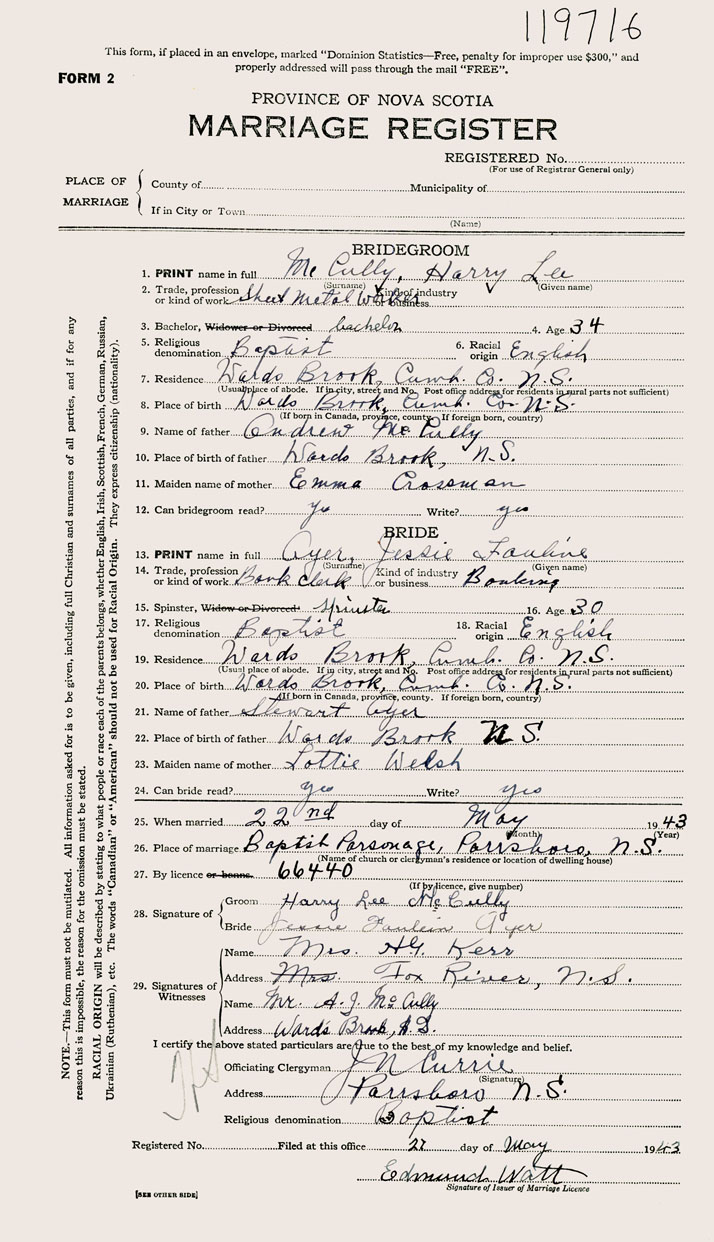 119716
This form, if placed in an envelope, marked "Dominion Statistics—Free, penalty for improper use $300," and
properly addressed will pass through the mail "FREE".
FORM 2
PROVINCE OF NOVA SCOTIA
MARRIAGE REGISTER
REGISTERED No.
(For use of Registrar General only)
PLACE OF MARRIAGE
County of Municipality of
If in City or Town
(Name)
BRIDEGROOM
1. PRINT name in full McCully, Harry Lee
(Surname) (Given name)
2. Trade, profession or kind of work Sheet Metal Worker Kind of industry or business
3. Bachelor, Widower or Divorced bachelor 4. Age 34
5. Religious denomination Baptist 6. Racial origin English
7. Residence Wards Brook, Cumb. Co. N.S.
(Usual place of abode. If in city, street and No. Post office address for residents in rural parts not sufficient)
8. Place of birth Wards Brook, Cumb. Co. N.S.
(If born in Canada, province, county. If foreign born, country)
9. Name of father Andrew McCully
10. Place of birth of father Wards Brook, N.S.
11. Maiden name of mother Emma Crossman
12. Can bridegroom read? yes Write? yes
BRIDE
13. PRINT name in full Ayer, Jessie Pauline
(Surname) (Given name)
14. Trade, profession or kind of work Bank clerk Kind of industry or business Banking
15. Spinster, Widow or Divorced Spinster 16. Age 30
17. Religious denomination Baptist 18. Racial origin English
19. Residence Wards Brook, Cumb. Co. N.S.
(Usual place of abode. If in city, street and No. Post office address for residents in rural parts not sufficient)
20. Place of birth Wards Brook, Cumb. Co. N.S.
(If born in Canada, province, county. If foreign born, country)
21. Name of father Stewart Ayer
22. Place of birth of father Wards Brook N.S.
23. Maiden name of mother Lottie Welsh
24. Can bride read? yes Write? yes
25. When married 22nd day of May 1943
(Month) (Year)
26. Place of marriage Baptist Parsonage, Parrsboro, N.S.
(Name of church or clergyman's residence or location of dwelling house)
27. By licence or banns. 66440
(If by licence, give number)
28. Signature of Groom Harry Lee McCully
Bride Jessie Paulein Ayer
29. Signatures of Witnesses
Name Mrs. H.G. Kerr
Address Mrs. Fox River, N.S.
Name Mr. A.J. McCully
Address Wards Brook, N.S.
I certify the above stated particulars are true to the best of my knowledge and belief.
Officiating Clergyman J N Currie
(Signature)
Address Parrsboro N.S.
Religious denomination Baptist
Registered No. Filed at this office 27 day of May 1943
Edmund Watt
Signature of Issuer of Marriage Licence
[SEE OTHER SIDE]
NOTE.—This form must not be mutilated. All information asked for is to be given, including full Christian and surnames of all parties, and if for any
reason this is impossible, the reason for the omission must be stated.
RACIAL ORIGIN will be described by stating to what people or race each of the parents belongs, whether English, Irish, Scottish, French, German, Russian,
Ukrainian (Ruthenian), etc. The words "Canadian" or "American" should not be used for Racial Origin. They express citizenship (nationality).